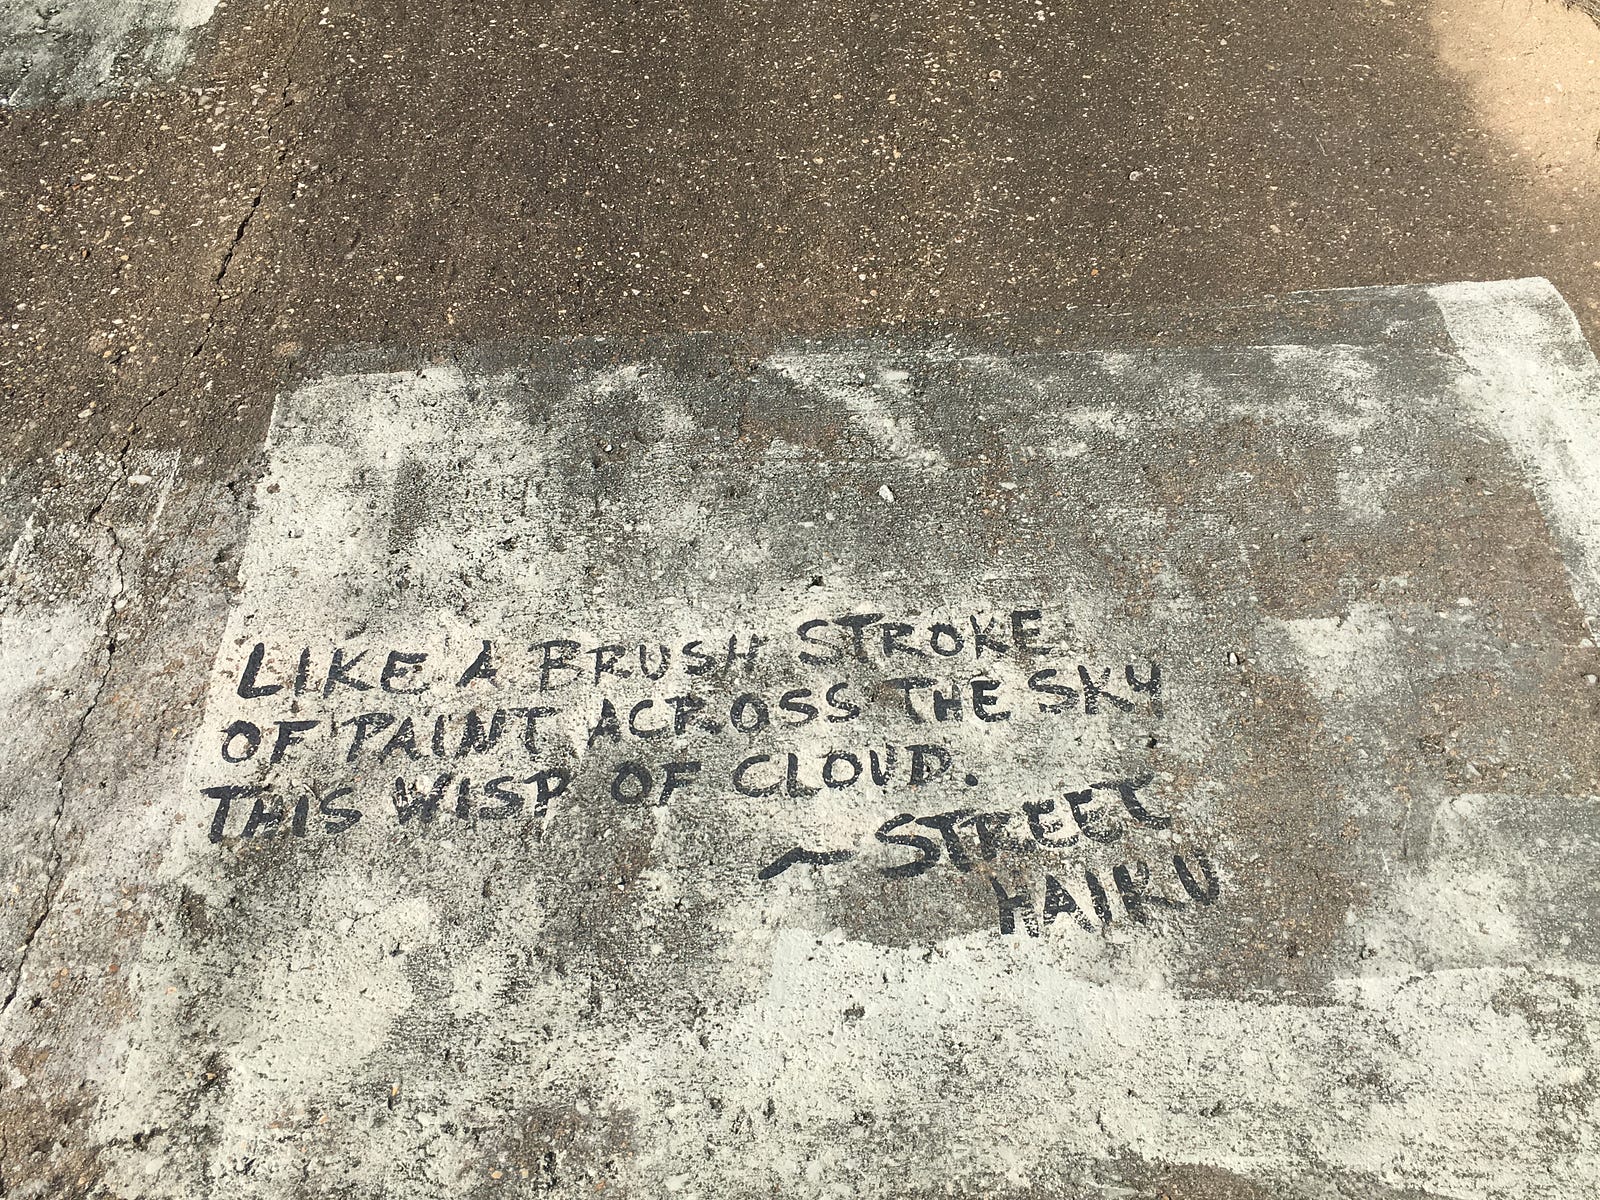 LIKE A BRUSH STROKE
OF PAINT ACROSS THE SKY
THIS WISP OF CLOUD.
~ STREET
HAIKU